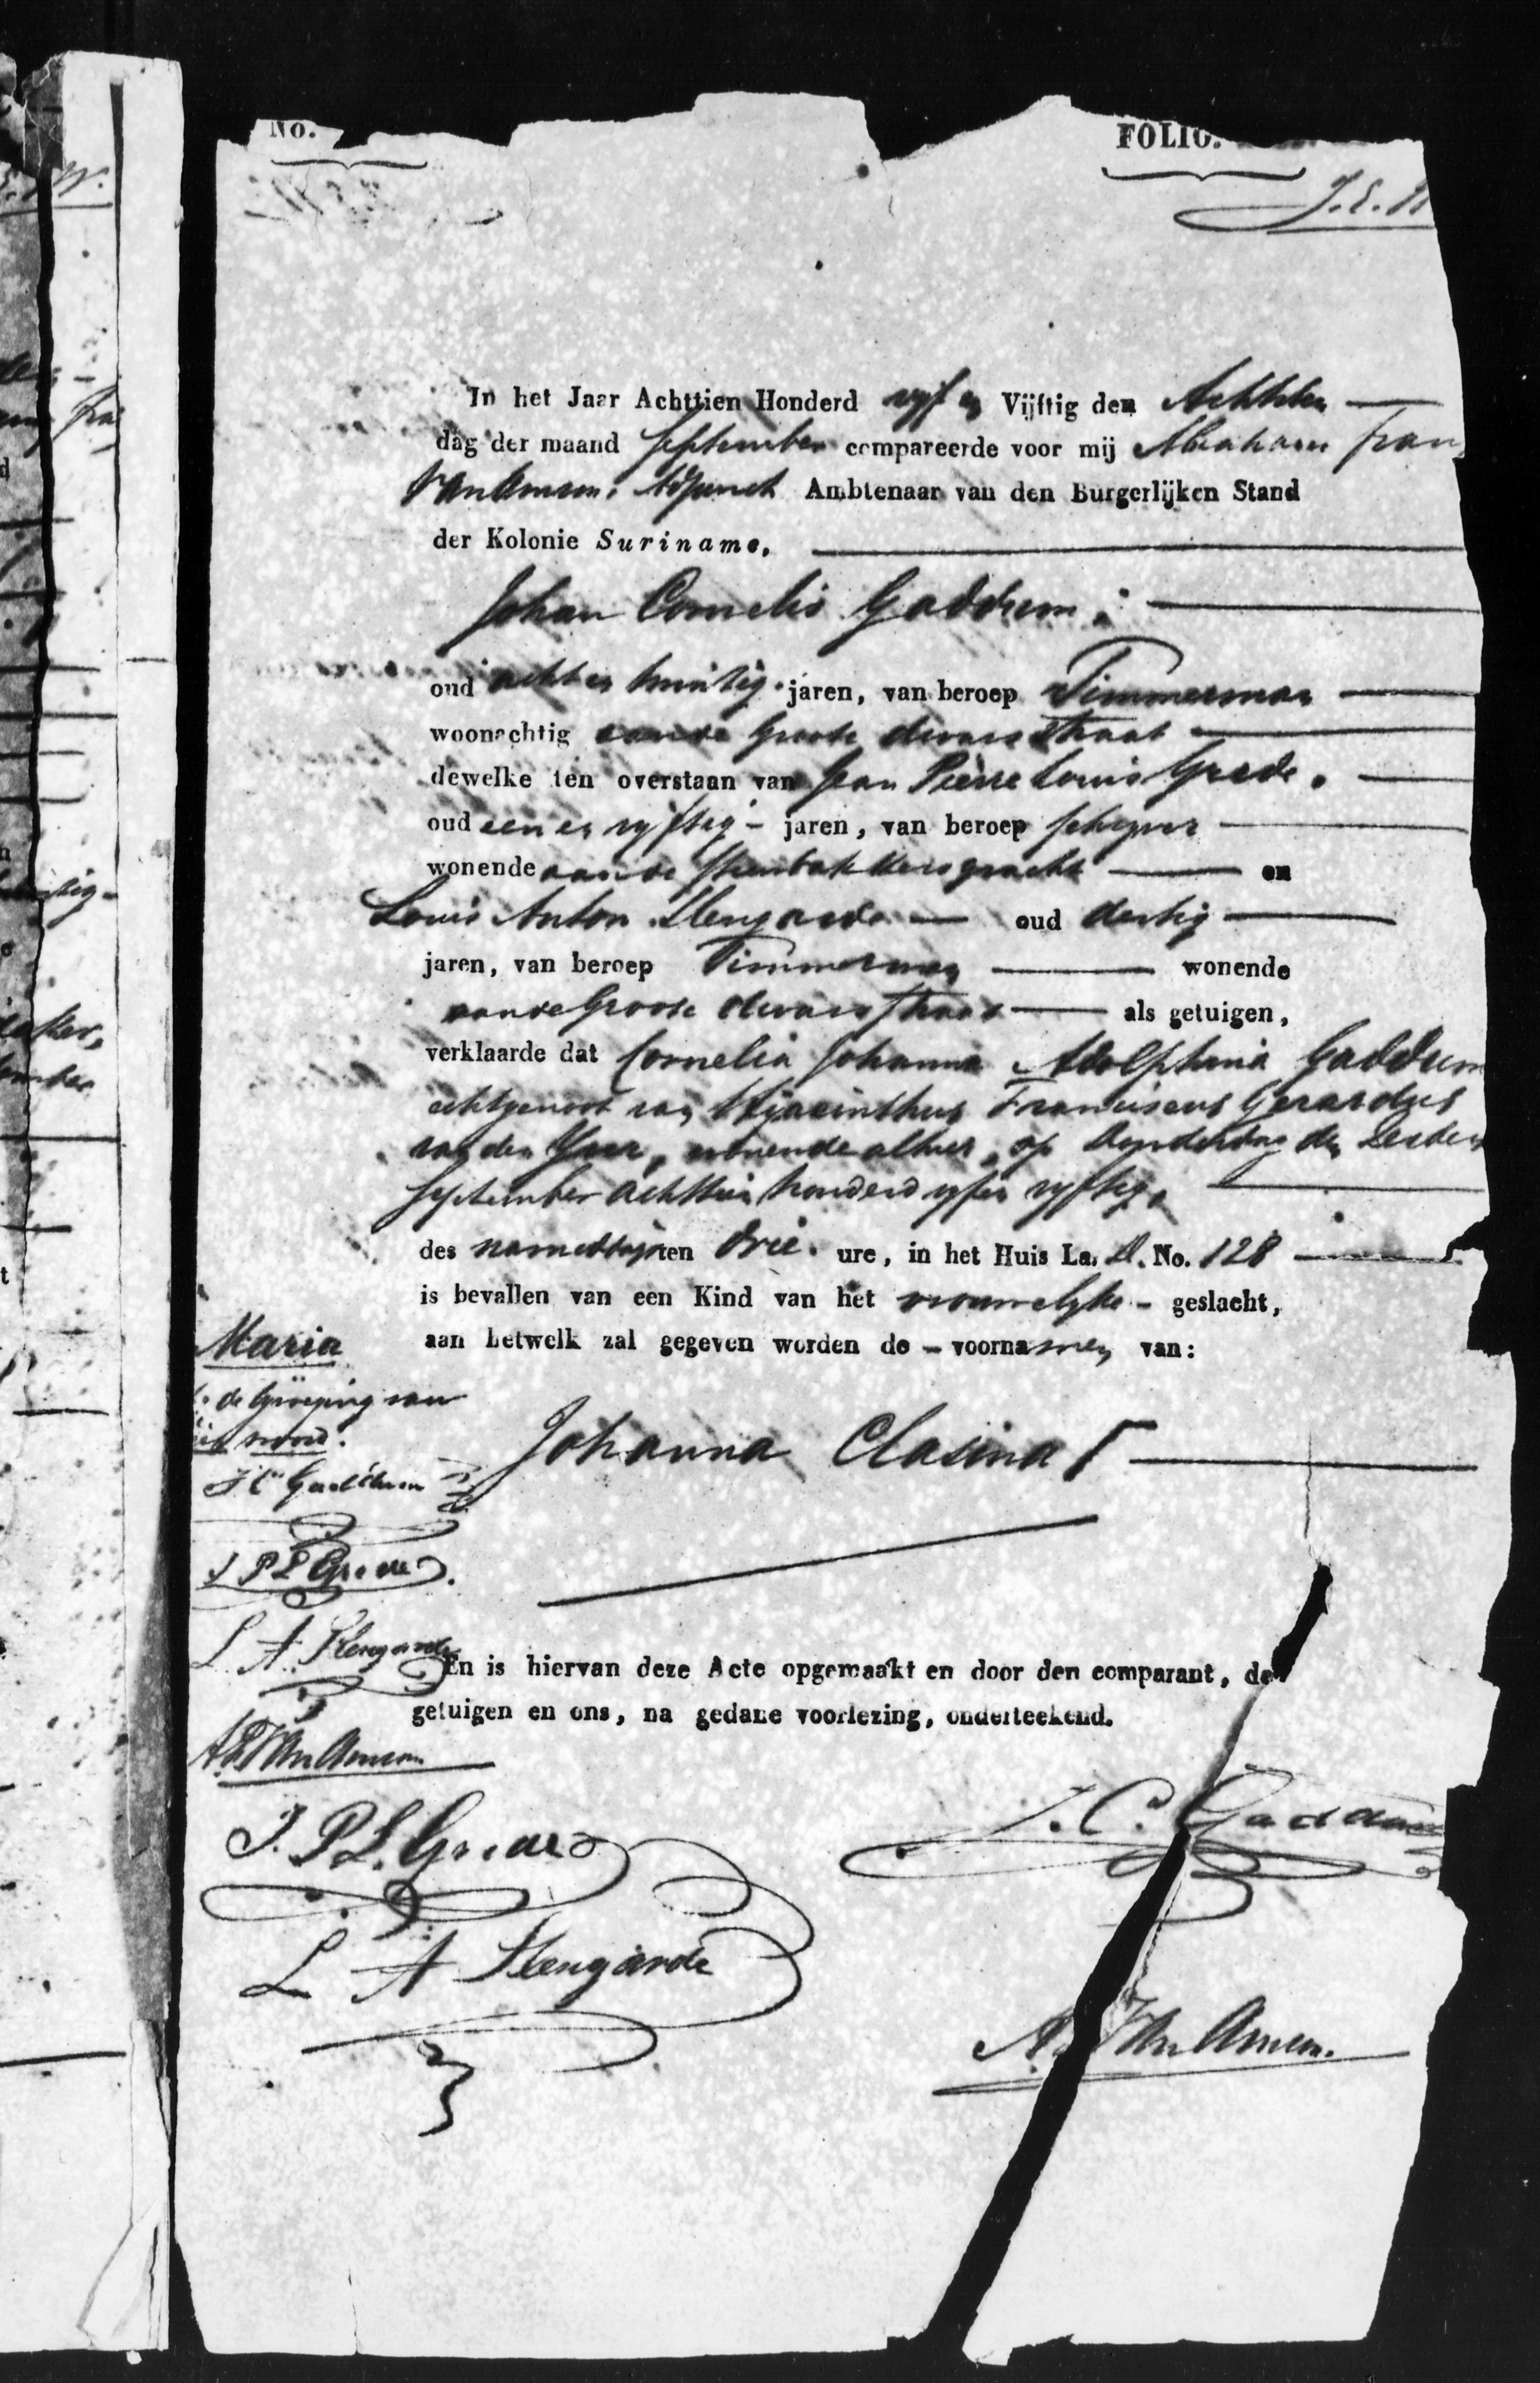 No.
FOLIO.
In het Jaar Achttien Honderd vyf en Vijftig den Achtsten
dag der maand September compareerde voor mij Abraham Fran
Van Amson, Adjunct Ambtenaar van den Burgerlijken Stand
der Kolonie Suriname,
Johan Cornelis Gaddum;
oud acht en twintig jaren, van beroep Timmerman
woonachtig aan de Groote dwars straat
dewelke ten overstaan van Jean Pierre Louis Grede.
oud een en vyftig - jaren, van beroep schryver
wonende aan de Steenbakkersgracht en
Louis Anton Slengarde oud dertig
jaren, van beroep Timmerman wonende
aan de Groote dwarsstraat als getuigen,
verklaarde dat Cornelia Johanna Adolphina Gaddum
echtgenoot van Hyacinthus Franciscus Gerardus
van den , wonende alhier, op Donderdag den Zesden
September achttien honderd vyf en vyftig,
des namiddagsten drie. ure, in het Huis La. A. No. 128
is bevallen van een Kind van het vrouwelyke - geslacht,
aan hetwelk zal gegeven worden de - voornamen van:
Maria
de Groeping van
woord.
J C Gaddum
Johanna Clasina
J P L Grede
L. A. Slengarde
En is hiervan deze Acte opgemaakt en door den comparant, de
getuigen en ons, na gedane voorlezing, onderteekend.
A F Van Amson
J. C. Gaddum
J. P. L. Grede
L A Slengarde
A Van Amson.